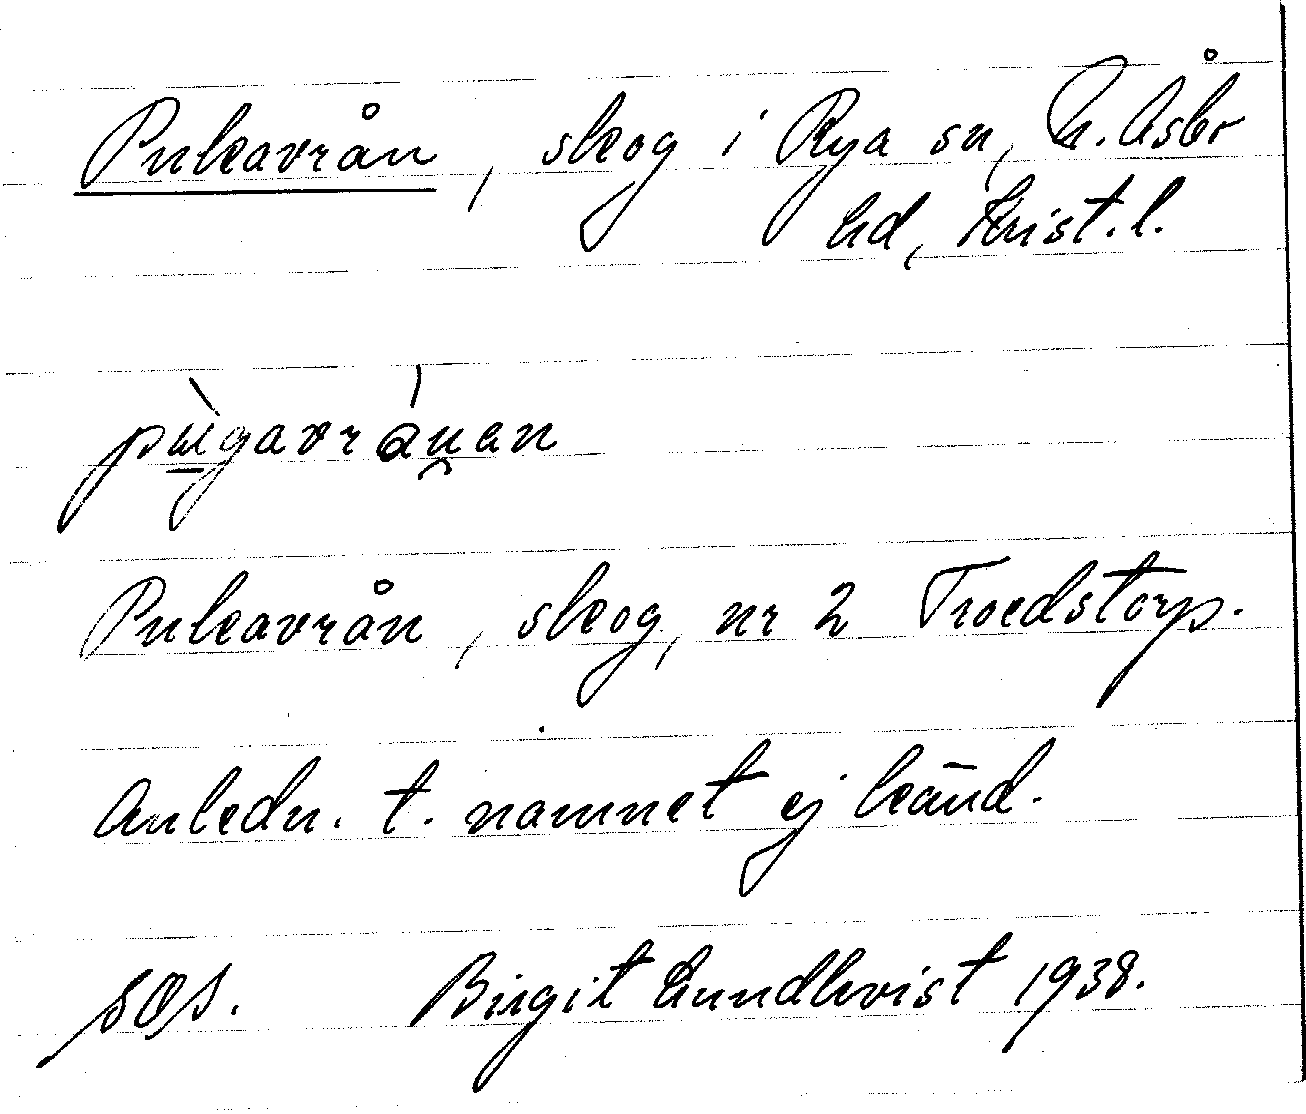 Pukavrån, skog i Rya sn, N. Åsbo
hd, Krist. l.
pùgavrånan
Pukavrån, skog, nr 2 Troedstorp.
Anledn. t. namnet ej känd.
Birgit Lundkvist 1938.